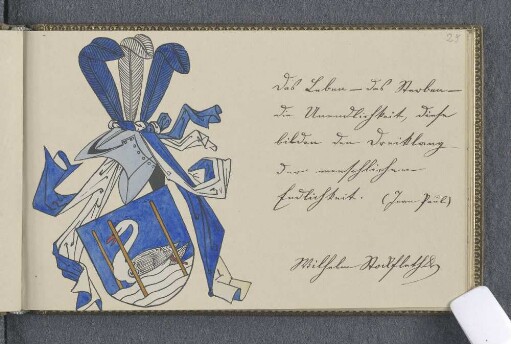 29
Das Leben – das Sterben –
die Unendlichkeit, diese
bilden den Dreiklang
der menschlichen
Endlichkeit. (Jean Paul)
Wilhelm Stockfleth